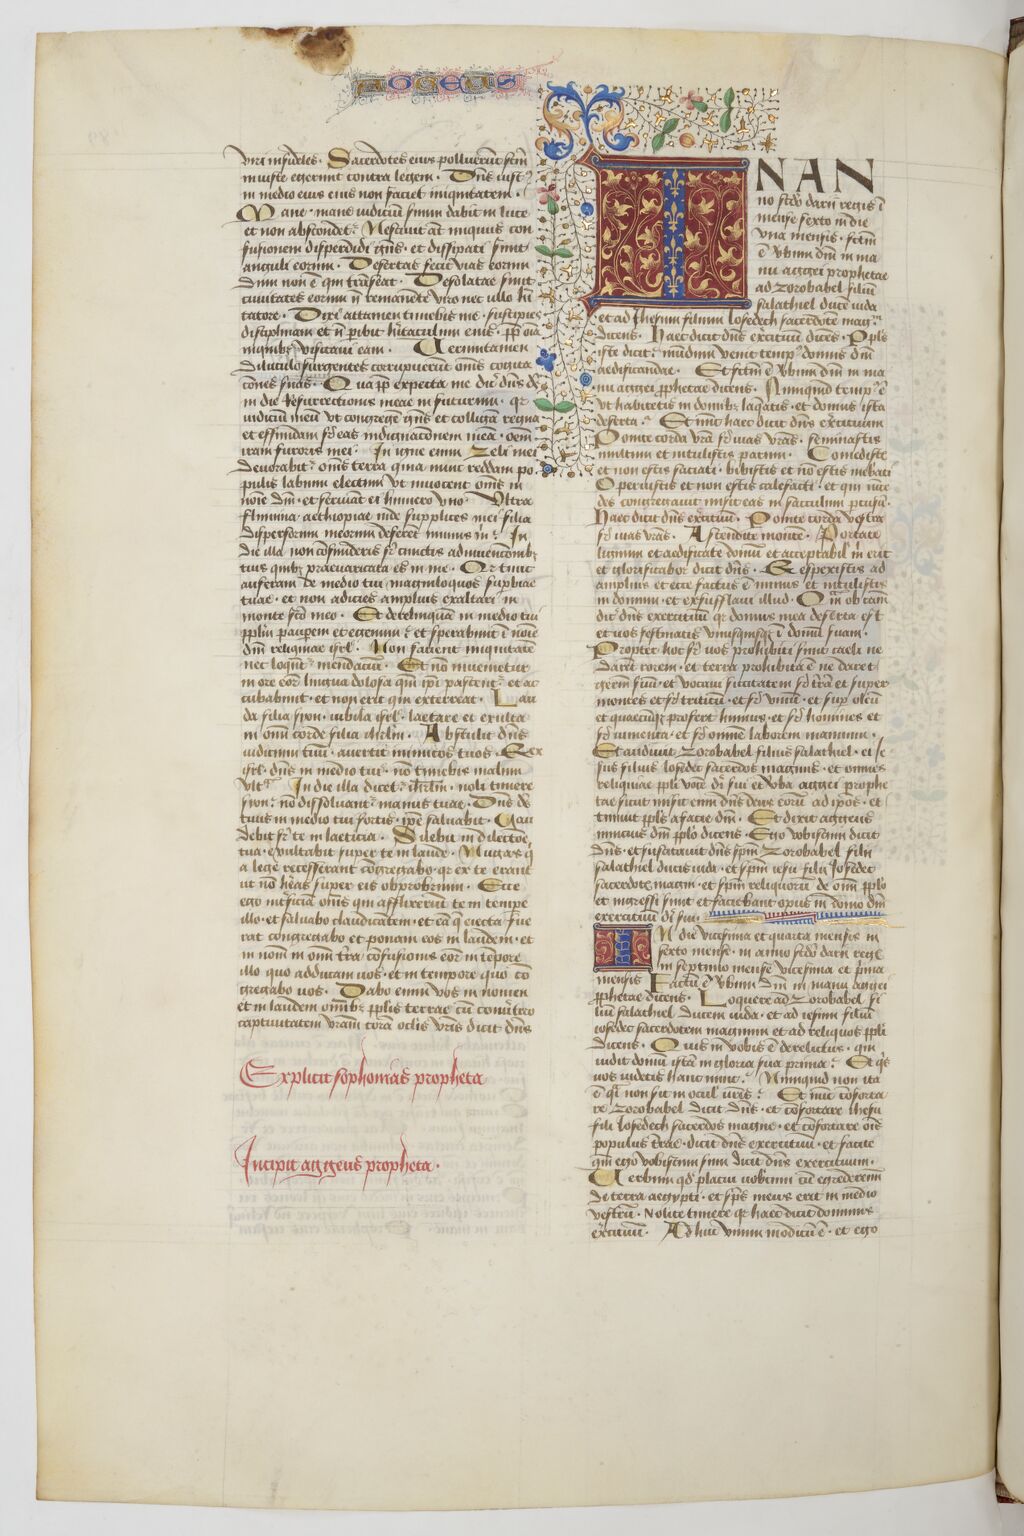 AGGEUS
viri infideles. Sacerdotes eius polluerūt sc̄m
iniuste egerunt contra legem. Dn̄s iust9
in medio eius non faciet iniquitatem.
Mane mane iudiciū suum dabit in luce
et non abscondet͛. Nesciuit at̄ iniquus con
fusionem disperdidi gn̄s. et dissipati sunt
anguli eorum. Desertas feci vias eorum
dum non ē qui trāseat. Desolatae sunt
ciuitates eorum nō remanēte viro nec ullo hīt
tatore. Dixi attamen timebis me. suscipies
disciplinam et n̄ peribit hītaculum eius. pp̄ oīa
in quibꝫ visitaui eam. Verumtamen
diluculo surgentes corruperunt om̄s cogita
cōnes suas. Quapp̄ expecta me dic̄ dn̄s
in die resurrectionis meae in futurum. qꝛ
iudiciū meū vt congregē gn̄s et colligā regna
et effundam sr̄ eas indignacōnem meā. oēm
iram furoris mei. In igne enim zeli mei
deuorabit͛ om̄s terra quia tunc reddam po
pulis labium electum vt inuocent om̄s in
noīe dn̄i. et seruiant ei humero vno. Vltra
flumina aethiopiae inde supplices mei filia
dispersorum meorum deferēt munus m̄. In
die illa non cōfunderis sr̄ cunctis adinuencōnibꝫ
tuis quibꝫ praeuaricata es in me. Qꝛ tunc
auferam de medio tui magniloquos supbiae
tuae. et non adicies amplius exaltari in
monte sc̄o meo. Et derelinquā in medio tui
pplm̄ pauperem et egenum. et sperabunt ī noīe
dn̄i reliquiae isrl̄. Non facient iniquitatē
nec loquēt͛ mendaciū. Et nō inuenietur
in ore eoꝝ lingua dolosa qm̄ ip̄i pascent͛. et ac
cubabunt. et non erit qui exterreat. Lau
da filia sion. iubila isrl̄. laetare et exulta
in omni corde filia ihrlm̄. Abstulit dn̄s
iudicium tuū. auertit inimicos tuos. Rex
isrl̄. dn̄s in medio tui. nō timebis malum
vlt͛ᵃ. In die illa dicet͛ ihrlm̄. noli timere
sion. nō dissoluant͛ manus tuae. Dn̄s ds̄
tuus in medio tui fortis. ip̄e saluabit. Gau
debit sr̄ te in laeticia. Silebit in dilectōe
tua. exultabit super te in laude. Nugas q̄
a lege recesserant cōgregabo. qꝛ ex te erant
ut nō hēas super eis obprobrium. Ecce
ego īterficiā om̄s qui afflixerūt te in tempe
illo. et saluabo claudicātem. et eā q̄ eiecta fue
rat congregabo et ponam eos in laudem. et
in nom̄ in om̄i tr̄a cōfusionis eoꝝ in tēpore
illo quo adducam uos. et in tempore quo cō
gregabo uos. Dabo enim vos in nomen
et in laudem om̄ibꝫ pplis terrae cū conu͛tero
captiuitatem vr̄am corā oclis vr̄is dicit dn̄s
Explicit sophonias propheta
Incipit aggeus propheta.
IN AN
no scd̄o darii regis ī
mense sexto in die
vna mensis. fcm̄
ē v͛bum dn̄i in ma
nu aggei prophetae
ad zorobabel filiū
salathiel ducē iuda
et ad ihesum filium iosedech sacerdotē mag.
dicens. Haec dicit dn̄s excituū dicēs. Ppls
iste dicit. nūdum venit temp9 domus dn̄i
aedificandae. Et fcm̄ ē v͛bum dn̄i in ma
nu aggei pphetae dicens. Nunquid temp9 ē
vt habitetis in domibꝫ laq̄atis. et domus ista
deserta. Et nunc haec dicit dn̄s ex͛cituum
Ponite corda vr̄a sr̄ uias vr̄as. seminastis
multum et intulistis parum. Comedistis
et non estis saciati. bibistis et nō estis inebriati
Operuistis et non estis calefacti. et qui m͛ce
des congregauit misit eas in sacculum p͛tusū.
Haec dicit dn̄s ex͛cituū. Ponite corda vestra
sr̄ uias vr̄as. Ascendite montē. Portate
lignum et aedificate domū et acceptabil̄ m̄ erit
et glorificabor dicit dn̄s. Respexistis ad
amplius et ecce factus ē minus et intulistis
in domum. et exsufflaui illud. Quā ob cām
dic̄ dn̄s exercituū qꝛ domus mea deserta est
et uos festinatis vnusquisqꝫ ī domū suam.
Propter hoc sr̄ uos prohibiti sunt caeli ne
darēt rorem. et terra prohibita ē ne daret
germ̄ suū. et vocaui siccitatem sr̄ tr̄ā et super
montes et sr̄ triticū. et sr̄ vinū. et sup oleū
et quaecūqꝫ profert humus. et sr̄ homines et
sr̄ iumenta. et sr̄ omnē laborem manuum.
Et audiuit zorobabel filius salathiel. et ie
sus filius iosedec sacerdos magnus. et omnes
reliquiae ppli vocē dī sui et v͛ba aggei prophe
tae sicut misit eum dn̄s deus eorū ad ip̄os. et
timuit ppls a facie dn̄i. Et dixit aggeus
nuncius dn̄i pplo dicens. Ego vobiscum dicit
dn̄s. et suscitauit dn̄s spm̄ zorobabel filii
salathiel ducis iuda. et spm̄ iesu filii iosedec
sacerdotis magni. et spm̄ reliquorū de om̄i pplo
et ingressi sunt et faciebant opus in domo dn̄i
exercituū dī sui.
IN die vicesima et quarta mensis in
sexto mense. in anno scd̄o darii regis
in septimo mense vicesima et prima
mensis. Factū ē v͛bum dn̄i in manu aggei
pphetae dicens. Loquere ad zorobabel fi
liū salathiel ducem iuda. et ad iesum filiū
iosedec sacerdotem magnum et ad reliquos ppli
dicens. Quis in vobis ē derelictus. qui
uidit domū istā in gloria sua prima. Et qd̄
uos uidetis hanc nunc. Nunquid non ita
ē q̄i non sit in ocul̄ vr̄is. Et nūc cōforta
re zorobabel dicit dn̄s. et cōfortare ihesu
fili iosedech sacerdos magne. et cōfortare oīs
populus t͛rae. dicit dn̄s exercituū. et facite
qm̄ ego vobiscum sum dicit dn̄s exercituum.
Verbum qd̄ placui uobiscum cū egrederemī
de terra aegypti. et sps̄ meus erit in medio
vestrū. Nolite timere qꝛ haec dicit dominus
ex͛cituū. Adhuc vnum modicū ē. et ego